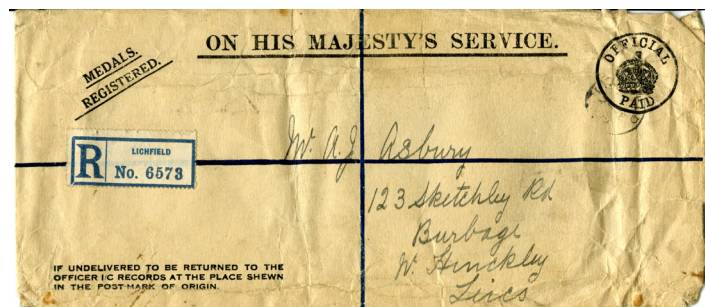 ON HIS MAJESTY'S SERVICE.
MEDALS.
REGISTERED.
OFFICIAL
PAID
R
LICHFIELD
No. 6573
Mr. A.J Asbury
123 Sketchley Rd
Burbage
Hinckley
IF UNDELIVERED TO BE RETURNED TO THE
OFFICER I/C RECORDS AT THE PLACE SHEWN
IN THE POST-MARK OF ORIGIN.